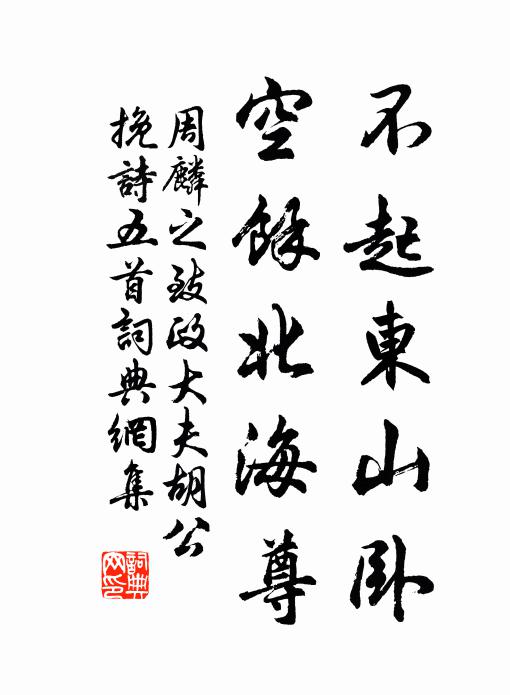 不起東山卧
空餘北海尊
周麟之致政大夫胡公
挽詩五首詞典網集
詞典
网印